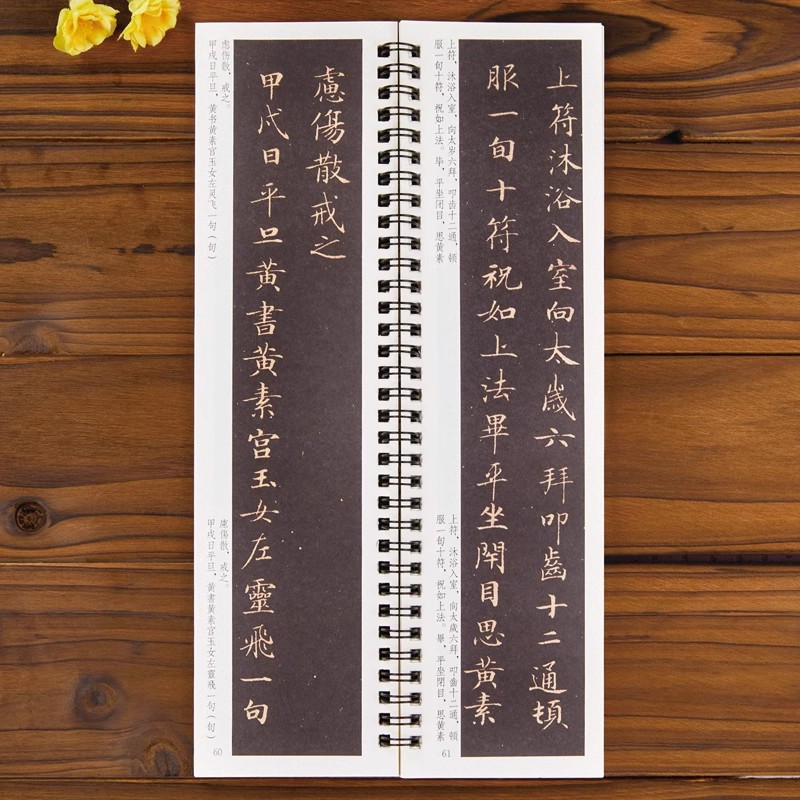 上符沐浴入室向太歲六拜叩齒十二通頓
服一旬十符祝如上法畢平坐閇目思黃素
上符，沐浴入室，向太岁六拜，叩齿十二通，顿
服一旬十符，祝如上法。毕，平坐闭目，思黄素
上符，沐浴入室，向太歲六拜，叩齒十二通，頓
服一旬十符，祝如上法。畢，平坐閉目，思黃素
61
慮傷散戒之
甲戌日平旦黃書黃素宮玉女左靈飛一旬
虑伤散，戒之。
甲戌日平旦，黄书黄素宫玉女左灵飞一旬（句）
慮傷散，戒之。
甲戌日平旦，黃書黃素宮玉女左靈飛一旬（句）
60